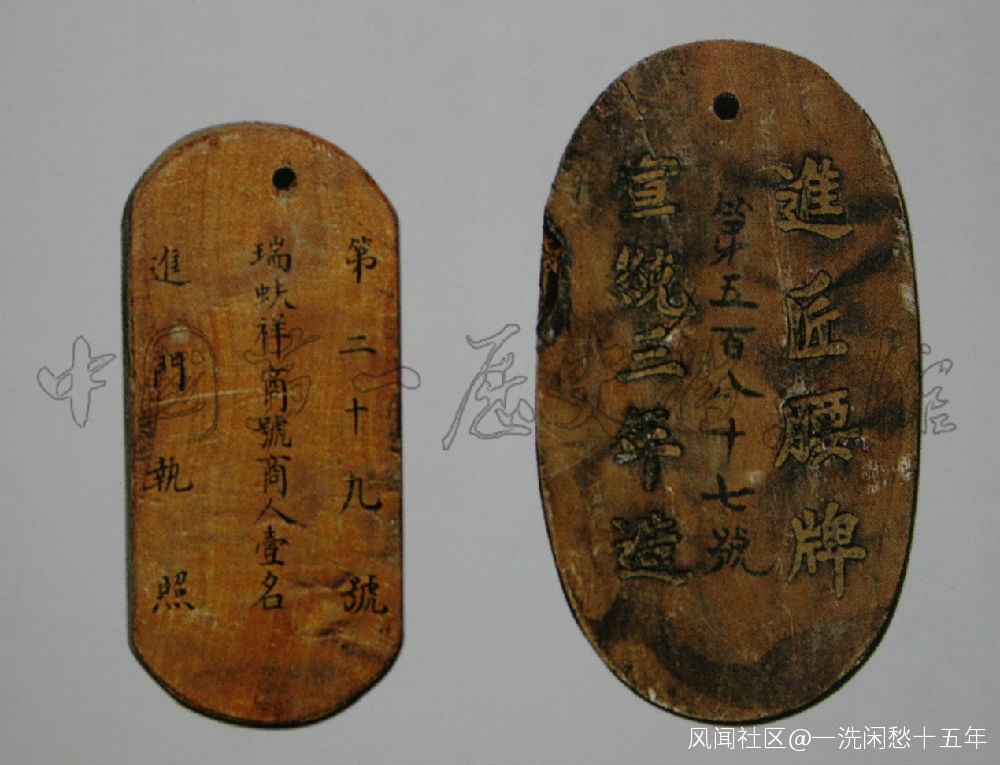 第二十九號
瑞蚨祥商號商人壹名
進門執照
進匠腰牌
第五百八十七號
宣統三年造
风闻社区@一洗闲愁十五年